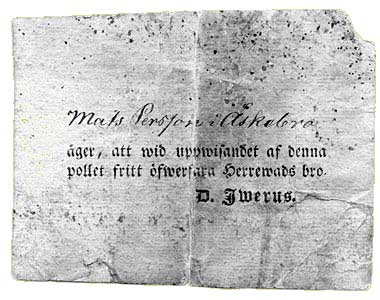 Mats Persson i Äskebro
äger, att wid uppwisandet af denna
pollet fritt öfwerfara Herrewads bro.
D. Iwerus.